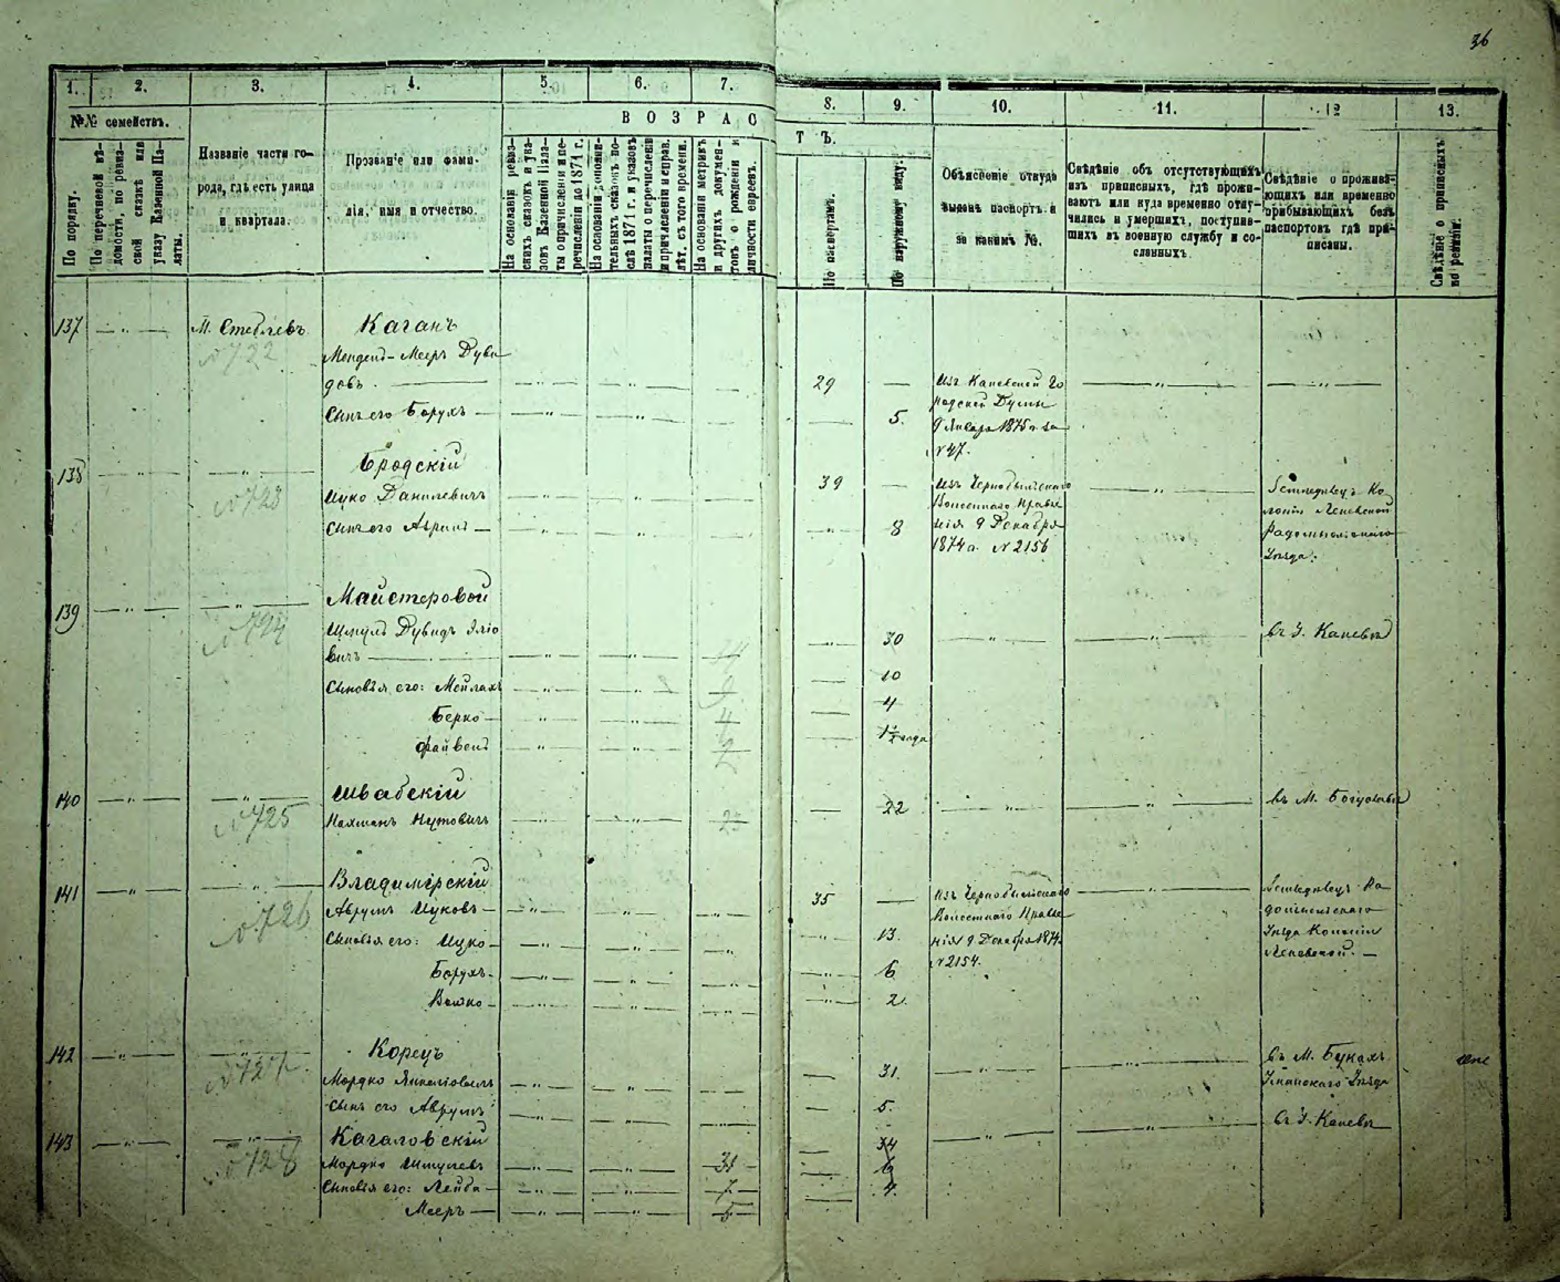 36
1. 2. 3. 4. 5. 6. 7. 8. 9. 10. 11. 12 13.
№№ семействъ.
В О З Р А С Т Ъ.
По порядку.
По перечневой вѣдомости, по ревизской сказкѣ или указу Казенной Палаты.
Названіе части города, гдѣ есть улица и квартала.
Прозваніе или фамилія, имя и отчество.
На основаніи ревизскихъ сказокъ и указовъ Казенной Палаты о причисленіи и перечисленіи до 1871 г.
На основаніи дополнительныхъ сказокъ послѣ 1871 г. и указовъ палаты о перечисленіи и причисленіи и справ. лѣт. съ того времени.
На основаніи метрикъ и другихъ документовъ о рожденіи и личности евреевъ.
По паспортамъ.
По наружному виду.
Объясненіе откуда выданъ паспортъ и за какимъ №.
Свѣдѣніе объ отсутствующихъ
изъ приписныхъ, гдѣ прожи-
ваютъ или куда временно отлу-
чились и умершихъ, поступив-
шихъ въ военную службу и со-
сланныхъ.
Свѣдѣніе о прожива-
ющихъ или временно
прибывающихъ безъ
паспортовъ гдѣ при-
писаны.
Свѣдѣніе о приписныхъ по ревизіи.
137 — „ — М. Стеблевъ Каганъ
№722 Мендель-Мееръ Дуви
довъ. — 29 — Изъ Каневской Го
Сынъ его Борухъ — 5. родской Думы
9 Января 1875 г. за
№47.
138 Бродскій
№723 Ицко Даниловичъ 39 — Изъ Чернобыльскаго
Сынъ его Аврумъ — 8 Волостнаго Правле
нія 9 Декабря
1874 г. №2156
Земледѣлецъ Ко
лоніи
Радомысльскаго
Уѣзда.
139 Майстеровой
№724 Шмуль Дувидъ Эліо 30 въ Г. Каневѣ
вичъ —
Сыновья его: Мейлахъ 9 10
Берко — 4 4
Файвель 2 1½ года
140 Швабскій
№725 Нахманъ Нутовичъ 23 22 въ М. Богуславѣ
141 Владимірскій
№726 Аврумъ Ицковъ — 35 — Изъ Чернобыльскаго
Сыновья его: Ицко — 13. Волостнаго Правле
Борухъ — 6 нія 9 Декабря 1874 г.
Волько — 2 №2154.
Земледѣлецъ Ра
домысльскаго
Уѣзда Колоніи
142 Корецъ
№727 Мордко Янкеліовичъ 31. въ М. Букахъ
Сынъ его Аврумъ 5. Уманскаго Уѣзда
143 Кагаловскій 34 въ Г. Каневѣ
№728 Мордко 31 6
Сыновья его: Лейба — 7 4.
Мееръ — 5